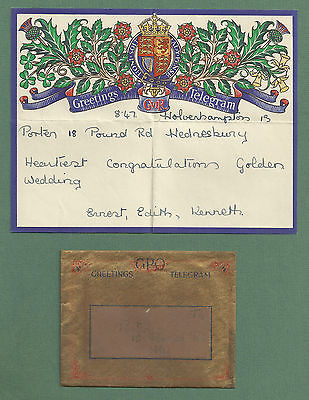 Greetings Telegram
GviR
8.47 Wolverhampton 13
Porter 18 Pound Rd Wednesbury
Heartiest Congratulations Golden
Wedding
Ernest, Edith, Kenneth
GPO
GREETINGS TELEGRAM